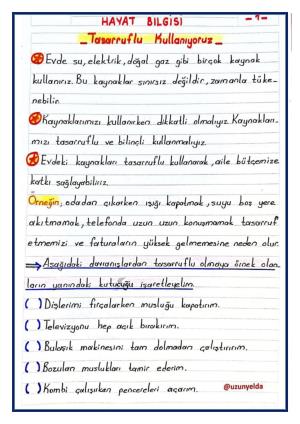 HAYAT BİLGİSİ -1-
_Tasarruflu Kullanıyoruz_
Evde su, elektrik, doğal gaz gibi birçok kaynak
kullanırız. Bu kaynaklar sınırsız değildir, zamanla tüke-
nebilir.
Kaynaklarımızı kullanırken dikkatli olmalıyız. Kaynakları-
mızı tasarruflu ve bilinçli kullanmalıyız.
Evdeki kaynakları tasarruflu kullanarak, aile bütçemize
katkı sağlayabiliriz.
Örneğin, odadan çıkarken ışığı kapatmak, suyu boş yere
akıtmamak, telefonda uzun uzun konuşmamak tasarruf
etmemizi ve faturaların yüksek gelmemesine neden olur.
⇒ Aşağıdaki davranışlardan tasarruflu olmaya örnek olan-
ların yanındaki kutucuğu işaretleyelim.
( ) Dişlerimi fırçalarken musluğu kapatırım.
( ) Televizyonu hep açık bırakırım.
( ) Bulaşık makinesini tam dolmadan çalıştırırım.
( ) Bozulan muslukları tamir ederim.
( ) Kombi çalışırken pencereleri açarım. @uzunyelda